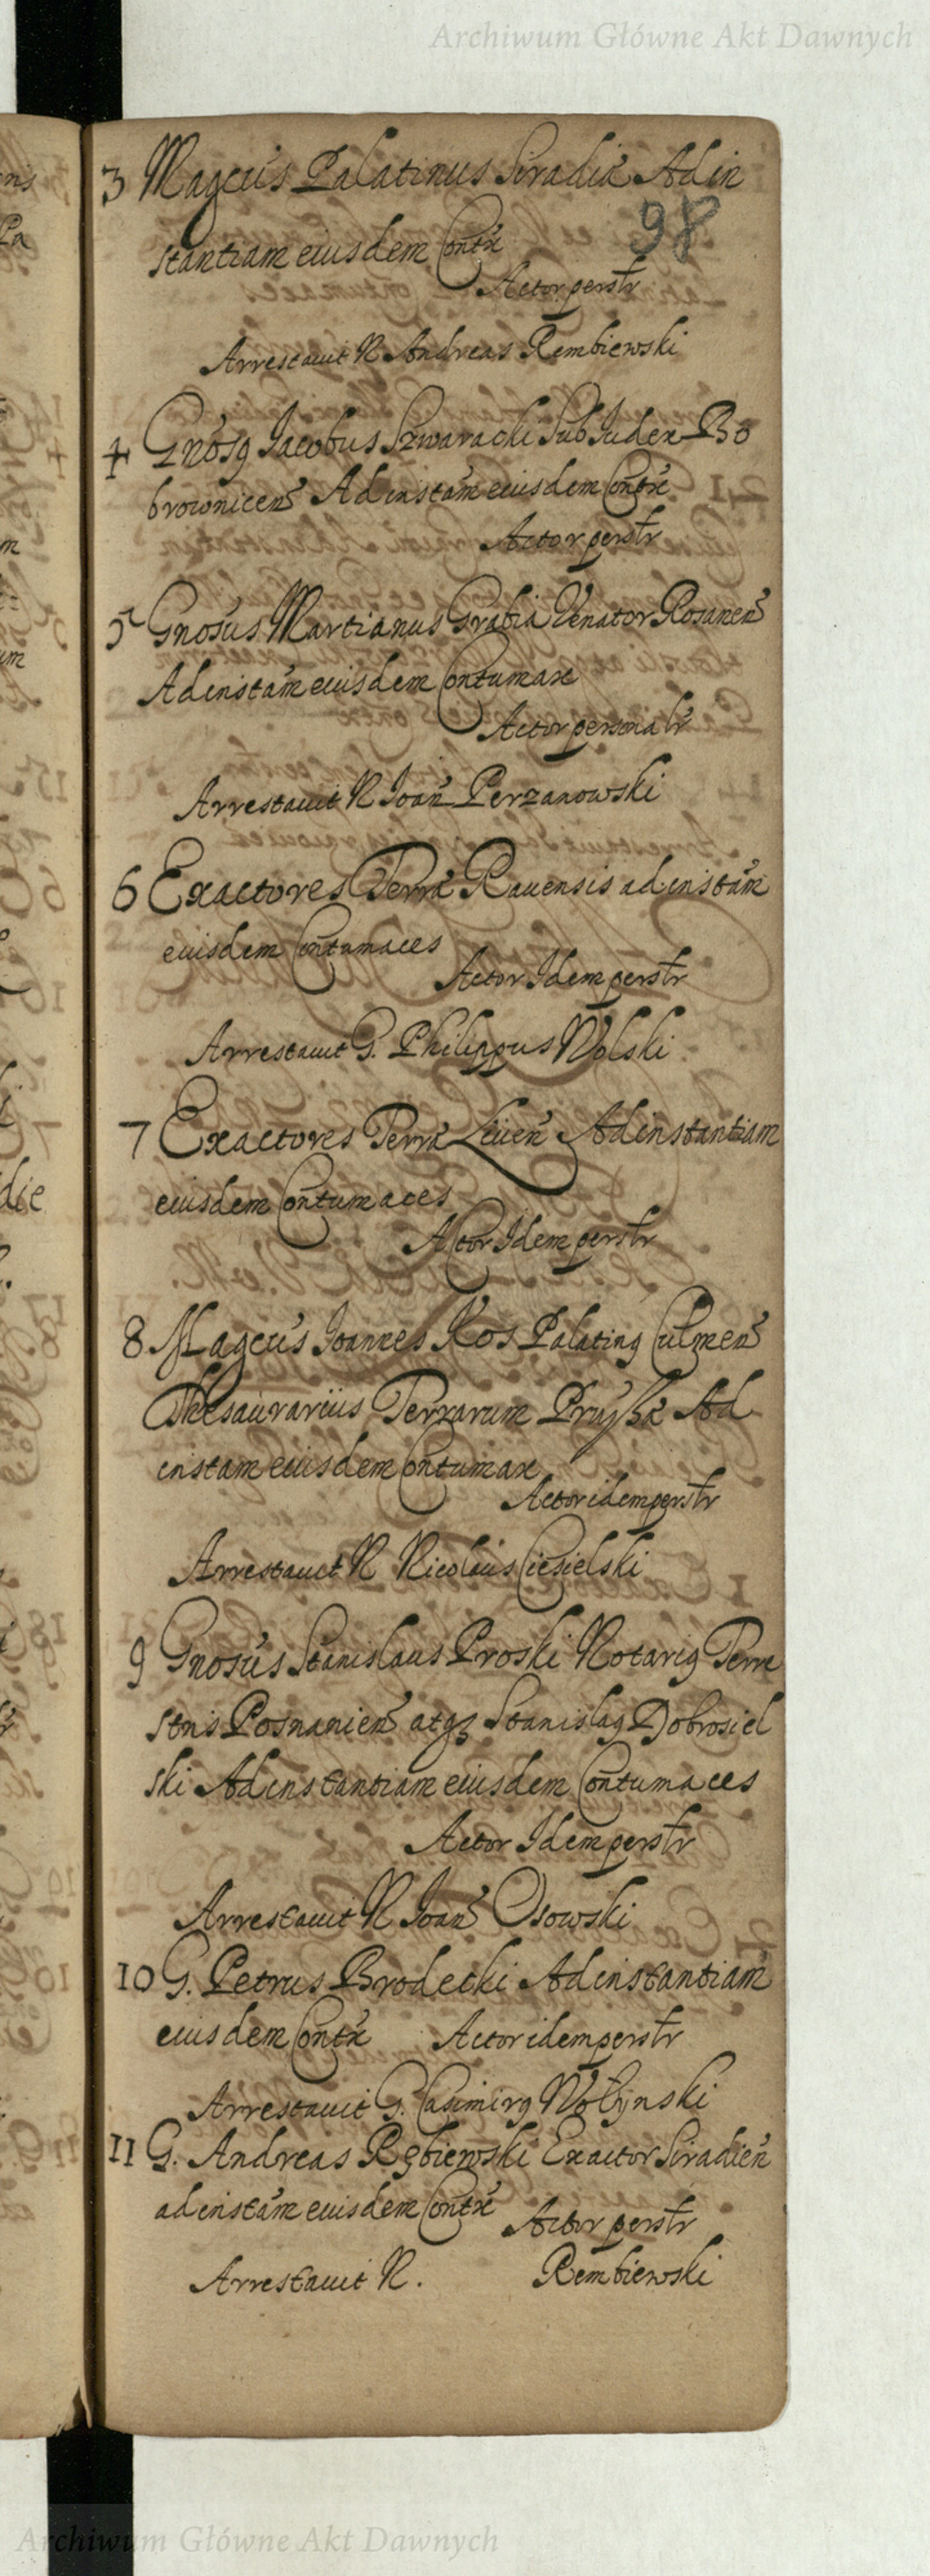 Archiwum Główne Akt Dawnych
3 Magcus Palatinus Siradiæ Adin
98
stantiam eiusdem Contx
Actor perstr
Arrestauit N Andreas Rembiewski
4 Gnosg Jacobus Szwaracki SubJudex Bo
brownicen Ad instam eiusdem Contx
Actor perstr
5 Gnosus Martianus Grabia Venator Rosanen
Adinstam eiusdem Contumax
Actor personalr
Arrestauit N Joan Perzanowski
6 Exactores Terræ Rauensis ad instam
eiusdem Contumaces
Actor Idem perstr
Arrestauit G. Philippus Wolski
7 Exactores Terræ Liuen Adinstantiam
eiusdem Contumaces
Actor Idem perstr
8 Magcus Joannes Kos Palating Culmen
Thesaurarius Terrarum Prussiæ Ad
instam eiusdem Contumax
Actor idem perstr
Arrestauit N Nicolaus Ciesielski
9 Gnosus Stanislaus Proski Notarig Terre
stris Posnanien atqz Stanislag Dobrosiel
ski Adinstantiam eiusdem Contumaces
Actor Idem perstr
Arrestauit N Joan Osowski
10 G. Petrus Brodecki Adinstantiam
eiusdem Contx Actor idem perstr
Arrestauit G. Casimirg Wołynski
11 G. Andreas Rębiewski Exactor Siradien
adinstam eiusdem Contx Actor perstr
Arrestauit N. Rembiewski
Archiwum Główne Akt Dawnych